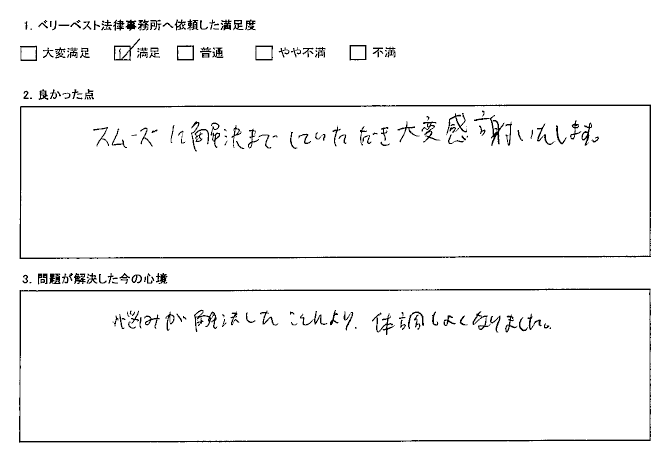 1. ベリーベスト法律事務所へ依頼した満足度
□ 大変満足 ☑ 満足 □ 普通 □ やや不満 □ 不満
2. 良かった点
スムーズに解決までしていただき大変感謝いたします。
3. 問題が解決した今の心境
悩みが解決したことにより、体調もよくなりました。